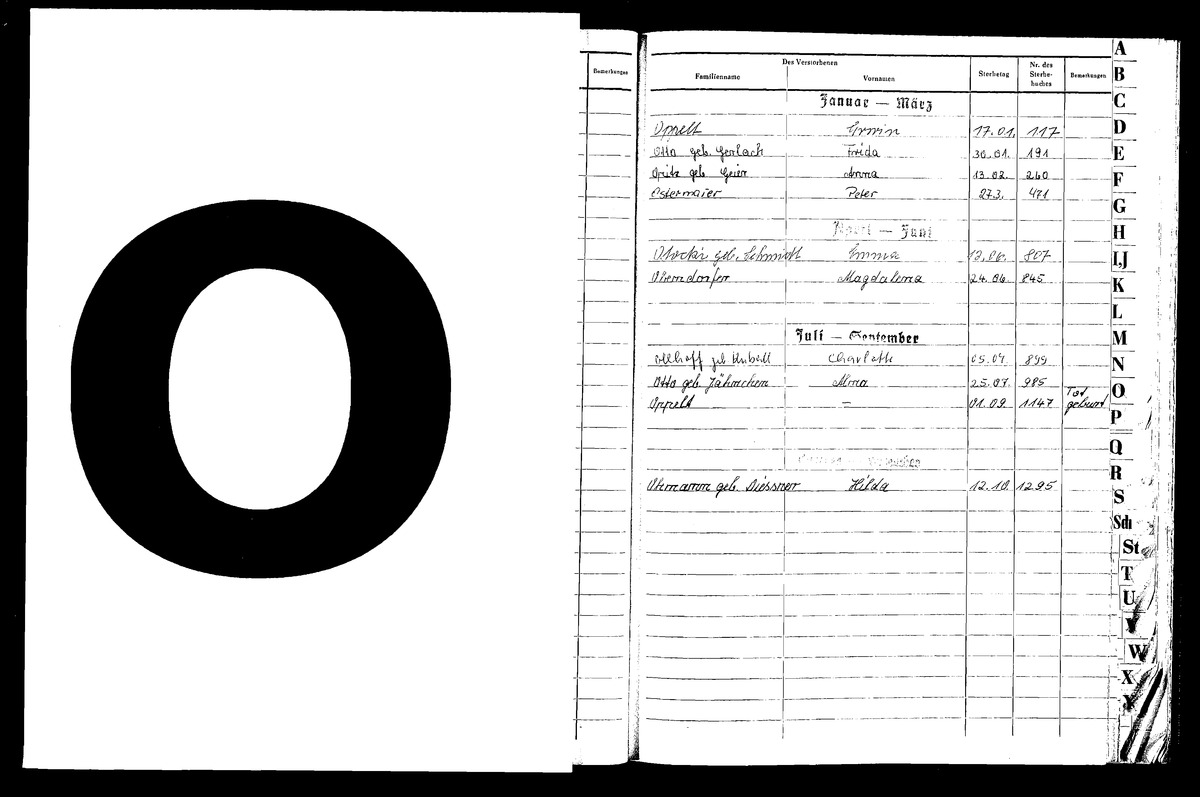 O
Bemerkungen
Des Verstorbenen
Familienname Vornamen Sterbetag Nr. des Sterbe-buches Bemerkungen
Januar — März
Oppelt Erwin 17.01. 117
Otto geb. Gerlach Frida 30.01. 191
Opitz geb Geier Anna 13.02. 260
Ostermaier Peter 27.3. 471
April — Juni
geb. Schmidt Emma 12.06. 807
Oberndorfer Magdalena 24.06. 845
Juli — September
geb Charlotte 05.07. 899
Otto geb. Jähnichen Alma 25.07. 985
Oppelt — 01.09. 1147 Tot geburt
geb. Diessner Hilda 12.10. 1295
A
B
C
D
E
F
G
H
I,J
K
L
M
N
O
P
Q
R
S
Sch
St
T
U
V
W
X
Y